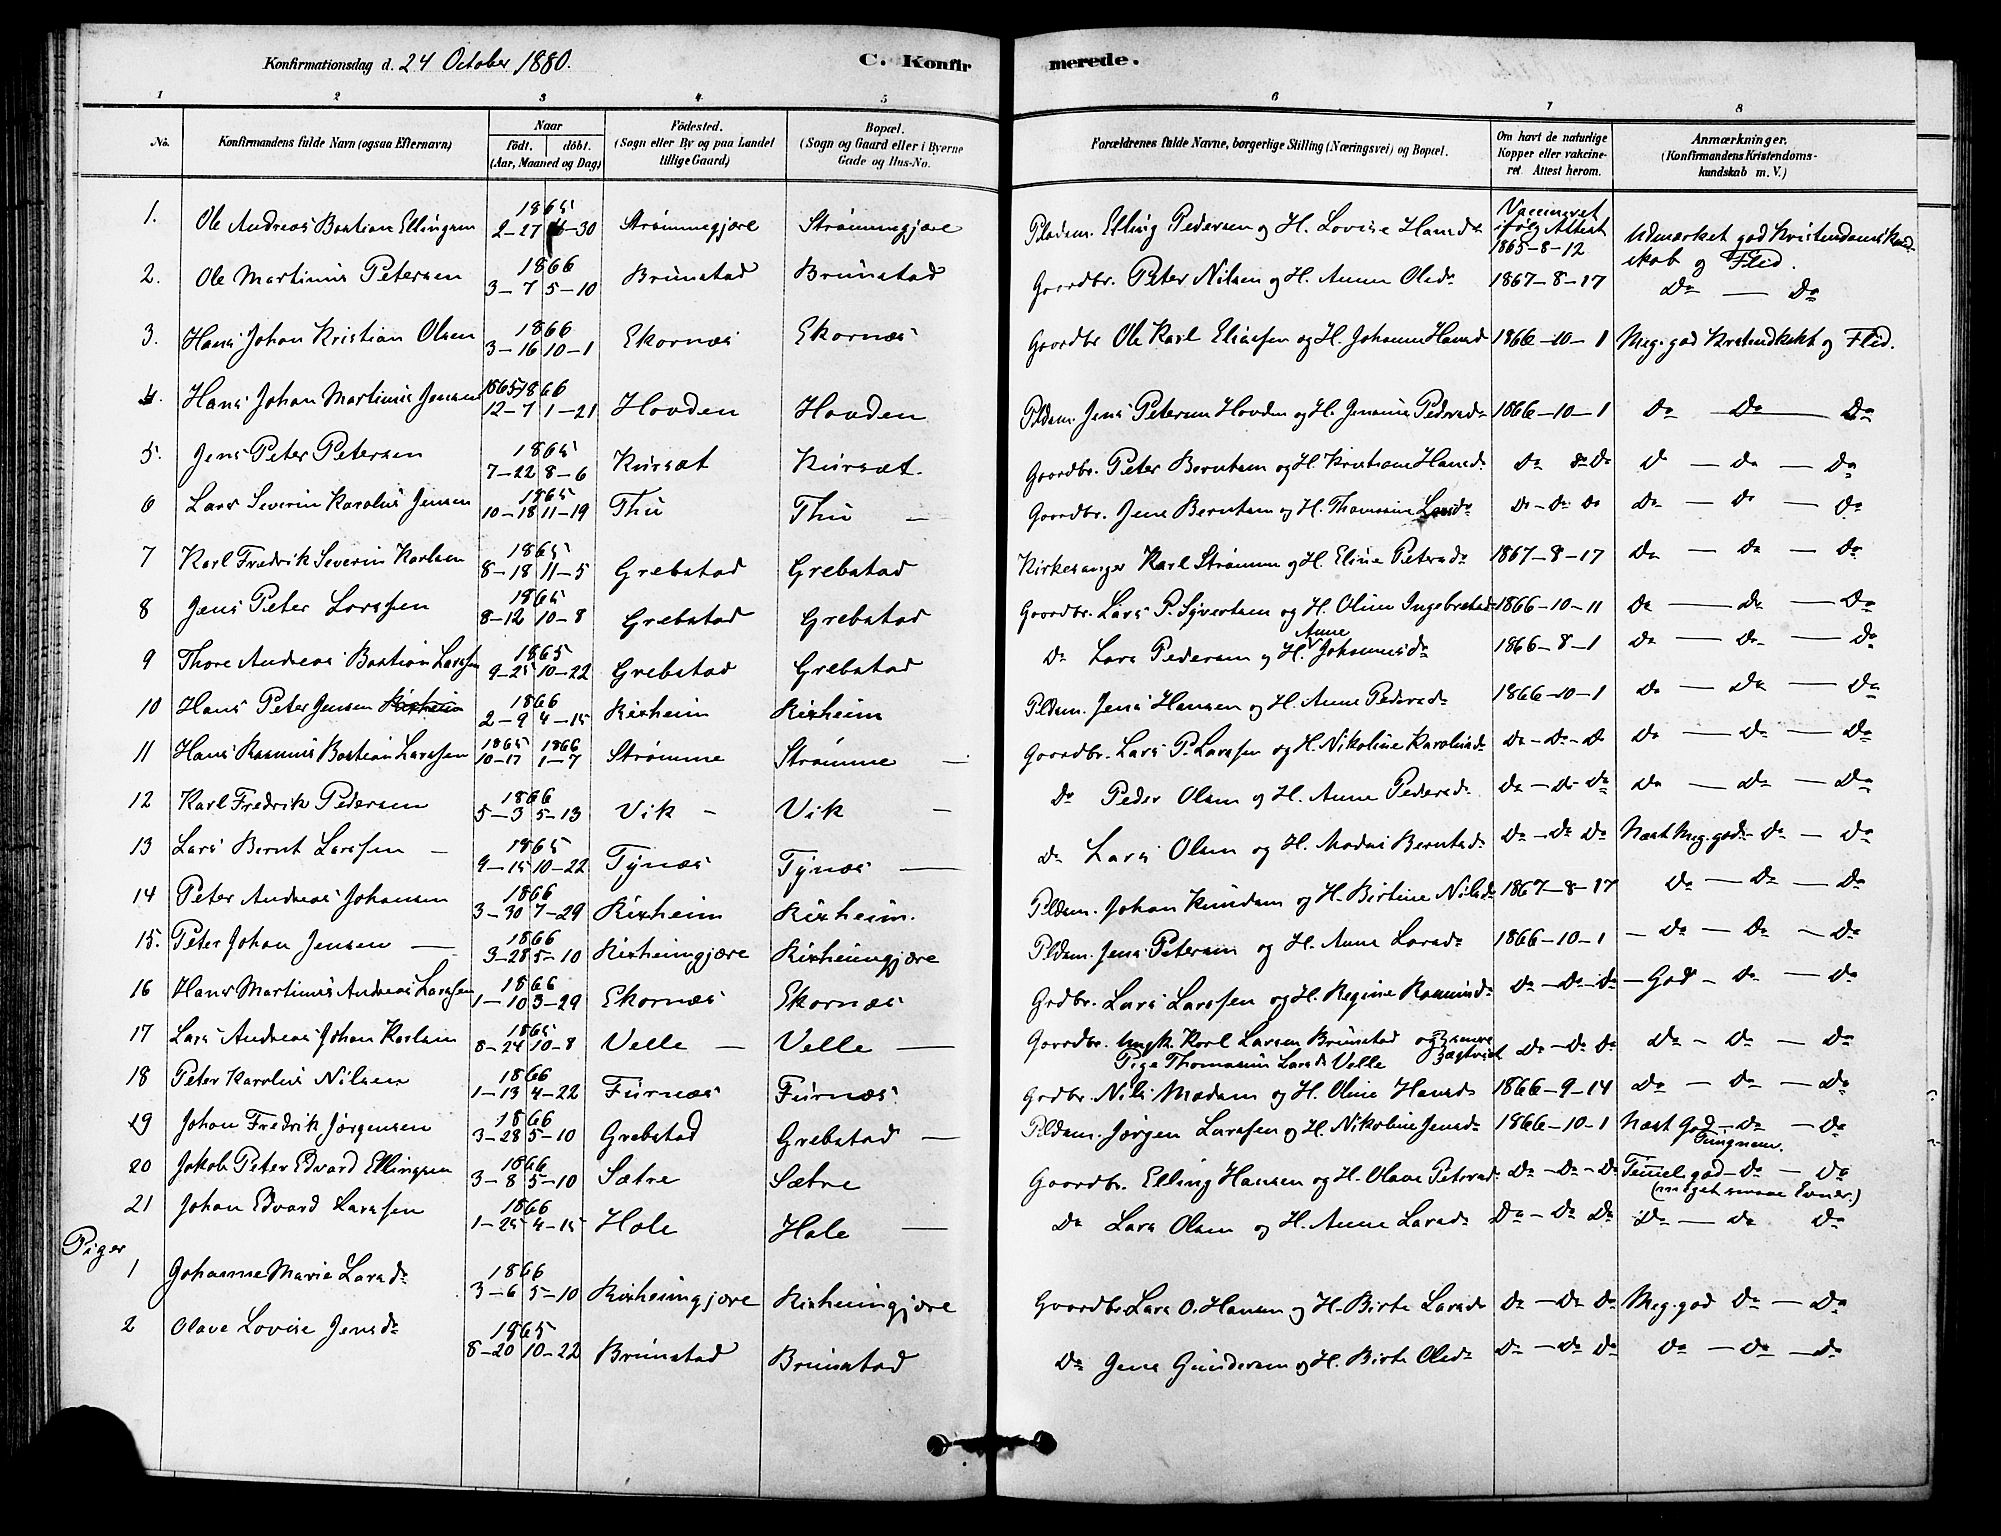 Konfirmationsdag d. 24 October 1880. C. Konfirmerede.
1 2 3 4 5 6 7 8
No. Konfirmandens fulde Navn (ogsaa Efternavn) Naar født. døbt. (Aar, Maaned og Dag) Födested. (Sogn eller By og paa Landet tillige Gaard) Bopæl. (Sogn og Gaard eller i Byerne Gade og Hus-No. Forældrenes fulde Navne, borgerlige Stilling (Næringsvei) og Bopæl. Om havt de naturlige Kopper eller vakcineret. Attest herom. Anmærkninger. (Konfirmandens Kristendomskundskab m. V.)
1. Ole Andreas Bastian Ellingsen 1865 2-27 4-30 Strømmegjære Strømmegjære Pladsm. Elling Pedersen og H. Lovise Hansd. Vaccineret ifølg Attest 1865-8-12 Udmærket god Kristendomskundskab og Flid.
2. Ole Martinus Petersen 1866 3-7 5-10 Brunstad Brunstad Gaardbr. Peter Nilsen og H. Anne Olsd. 1867-8-17 Do — Do
3. Hans Johan Kristian Olsen 1866 3-16 10-1 Ekornæs Ekornæs Gaardbr. Ole Karl Eliassen og H. Johanne Hansd 1866-10-1 Meg. god og Flid.
4. Hans Johan Martinus Jensen 1865 1866 12-7 1-21 Hovden Hovden Pldsm. Jens Petersen Hovden og H. Jensine Pedersd. 1866-10-1 Do — Do — Do
5. Jens Peter Petersen 1865 7-22 8-6 Kursæt Kursæt. Gaardbr. Peter Berntsen og H. Kristiane Hansd. Do Do D — Do — Do
6 Lars Severin Karolus Jensen 1865 10-18 11-19 Thu Thu — Gaardbr. Jens Berntsen og H. Thomasine Larsd. Do - Do Do Do — Do — Do
7 Karl Fredrik Severin Karlsen 1865 8-18 11-5 Grebstad Grebstad Kirkesanger Karl Strømme og H. Eline Petersd. 1867-8-17 Do — Do — Do
8 Jens Peter Larssen 1865 8-12 10-8 Grebstad Grebstad Gaardbr. Lars P. Syvertsen og H. Oline Ingebretsd. 1866-10-11 Do — Do — Do
9 Thore Andreas Bastian Larssen 1865 9-25 10-22 Grebstad Grebstad Do Lars Pedersen og H. Anne Johannesd. 1866-8-1 Do — Do — Do
10 Hans Peter Jensen Kirheim 1866 2-9 4-15 Kirheim Kirheim Pldsm. Jens Hansen og H. Anne Pedersd. 1866-10-1 Do — Do — Do
11 Hans Rasmus Bastian Larssen 1865 1866 10-17 1-7 Strømme Strømme — Gaardbr. Lars P. Larssen og H. Nikoline Karolusd. Do - Do - Do Do — Do — Do
12 Karl Fredrik Pedersen 1866 5-3 5-13 Vik - Vik — Do Peder Olsen og H. Anne Pedersd. Do - Do Do Do — Do — Do
13 Lars Bernt Larssen — 1865 9-15 10-22 Tynæs Tynæs — Do Lars Olsen og H. Berntsd. Do - Do Do Næst Meg. god - Do — Do
14 Peter Andreas Johansen 1866 3-30 7-29 Kirheim Kirheim. Pldsm. Johan Knudsen og H. Birtine Nilsd. 1867-8-17 Do — Do — Do
15. Peter Johan Jensen — 1866 3-28 5-10 Kirheimgjære Kirheimgjære Pldsm. Jens Petersen og H. Anne Larsd. 1866-10-1 - Do — Do — Do
16 Hans Martinus Andreas Larssen 1866 1-10 3-29 Ekornæs Ekornæs Grdbr. Lars Larssen og H. Regine Rasmusd. Do - Do - Do - God - Do — Do
17 Lars Andreas Johan Karlsen 1865 8-24 10-8 Velle — Velle — Gaardbr. Ungk. Karl Larsen Brunstad og Pige Thomasine Larsd. Velle Do - Do Do Do - Do — Do
18 Peter Karolus Nilsen 1866 1-13 4-22 Furnæs Furnæs Grdbr. Nils Madsen og H. Oline Hansd. 1866-9-14 Do — Do — Do
19 Johan Fredrik Jørgensen 1866 3-28 5-10 Grebstad Grebstad — Pldsm. Jørgen Larssen og H. Nikoline Jensd. 1866-10-1 Næst God - Do — Do
20 Jakob Peter Edvard Ellingsen 1866 3-8 5-10 Sætre Sætre Gaardbr. Elling Hansen og H. Olave Petersd. Do - Do - Do Temmel. god - Do — Do (meget smaae Evner.)
21 Johan Edvard Larssen 1866 1-25 4-15 Hole Hole — Do Lars Olsen og H. Anne Larsd. Do - Do Do Do — Do Do
Piger
1 Johanne Marie Larsd. 1866 3-6 5-10 Kirheimgjære Kirheimgjære Gaardbr. Lars O. Hansen og H. Birte Larsd. Do - Do Do Meg. god Do — Do
2 Olave Lovise Jensd. 1865 8-20 10-22 Brunstad Brunstad Do Jens Gundersen og H. Birte Olsd. Do - Do Do Do — Do — Do